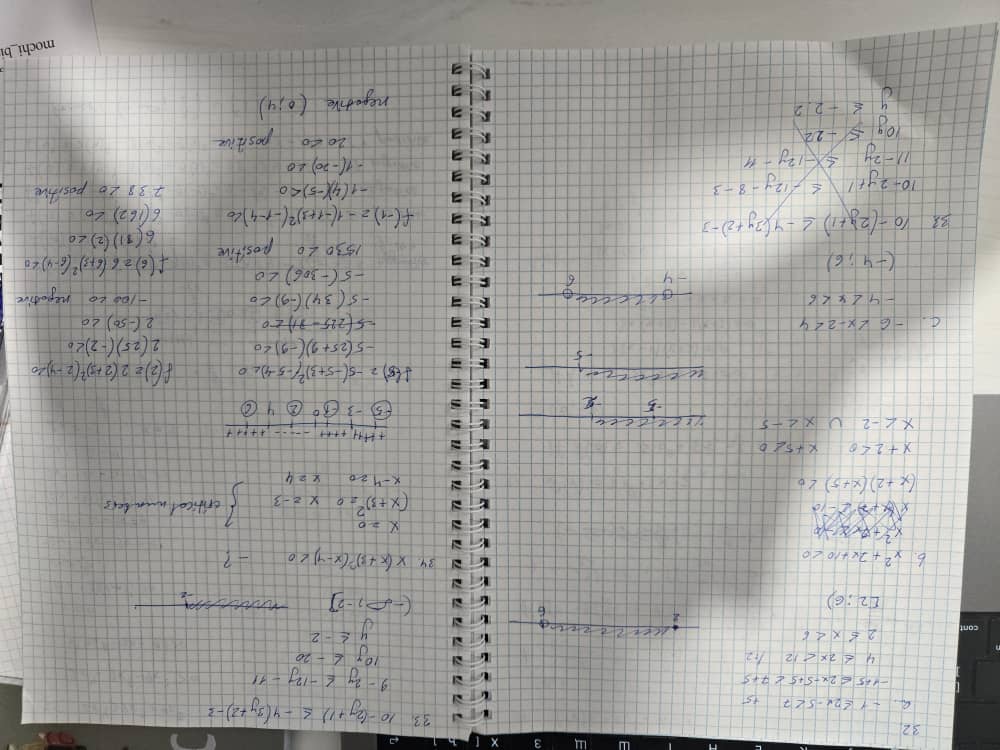 32
a. -1 ≤ 2x-5 < 7 +5
-1+5 ≤ 2x-5+5 < 7+5
4 ≤ 2x < 12 /:2
2 ≤ x < 6
[2;6)
2 6
b. x²+7x+10<0
(x+2)(x+5)<0
x+2<0 x+5<0
x<-2 ∪ x<-5
-5 -2
-5
c. -6<x-2<4
-4<x<6
(-4;6)
-4 6
33 10-(2y+1) ≤ -4(3y+2)-3
10-2y+1 ≤ -12y-8-3
11-2y ≤ -12y-11
10y ≤ -22
y ≤ -2.2
33 10-(2y+1) ≤ -4(3y+2)-3
9-2y ≤ -12y-11
10y ≤ -20
y ≤ -2
(-∞;-2] -2
34. x(x+3)²(x-4)<0 -?
x=0
(x+3)²=0 x=-3 } critical numbers
x-4=0 x=4
-5 -3 -1 0 2 4 6
f(-5)=-5(-5+3)²(-5-4)<0
-5(25+9)(-9)<0
-5(225-81)<0
-5(34)(-9)<0
-5(-306)<0
1530<0 positive
f(-1)=-1(-1+3)²(-1-4)<0
-1(4)(-5)<0
-1(-20)<0
20<0 positive
negative (0;4)
f(2)=2(2+3)²(2-4)<0
2(25)(-2)<0
2(-50)<0
-100<0 negative
f(6)=6(6+3)²(6-4)<0
6(81)(2)<0
6(162)<0
238<0 positive